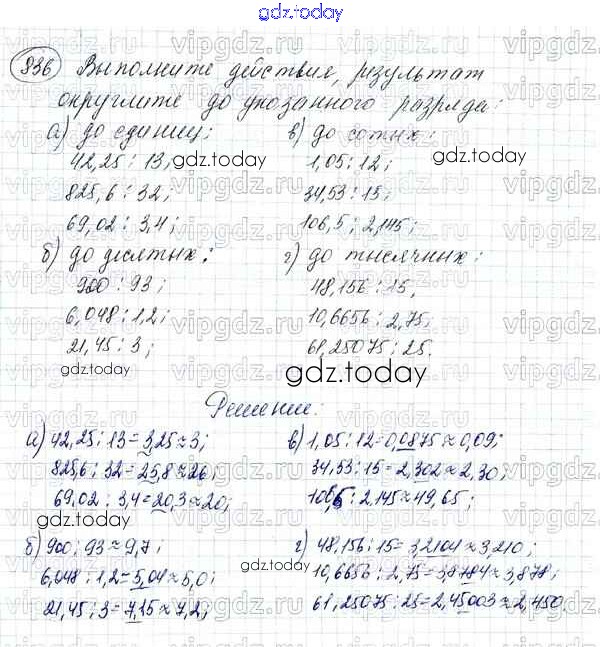 gdz.today
836 Выполните действия, результат
округлите до указанного разряда:
а) до единиц;
42,25 : 13;
825,6 : 32;
69,02 : 3,4;
б) до десятых:
900 : 93;
6,048 : 1,2;
21,45 : 3;
в) до сотых:
1,05 : 12;
34,53 : 15;
106,5 : 2,145;
г) до тысячных:
48,156 : 15,
10,6656 : 2,75,
61,25075 : 25.
gdz.today
gdz.today
gdz.today
gdz.today
Решение:
а) 42,25 : 13 = 3,25 ≈ 3;
825,6 : 32 = 25,8 ≈ 26;
69,02 : 3,4 = 20,3 ≈ 20;
б) 900 : 93 ≈ 9,7;
6,048 : 1,2 = 5,04 ≈ 5,0;
21,45 : 3 = 7,15 ≈ 7,2;
в) 1,05 : 12 = 0,0875 ≈ 0,09;
34,53 : 15 = 2,302 ≈ 2,30;
106,5 : 2,145 ≈ 49,65;
г) 48,156 : 15 = 3,2104 ≈ 3,210;
10,6656 : 2,75 = 3,8784 ≈ 3,878;
61,25075 : 25 = 2,45003 ≈ 2,450.
gdz.today
gdz.today
vipgdz.ru